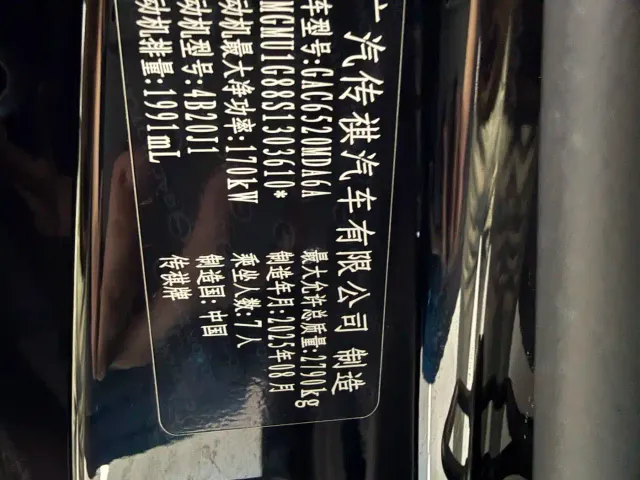 广汽传祺汽车有限公司 制造
车型号:GAC6520MDA6A
最大允许总质量:2790kg
MGMU1G88S1303610*
制造年月:2025年08月
动机最大净功率:170kW
乘坐人数:7人
动机型号:4B20J1
制造国:中国
动机排量:1991mL
传祺牌